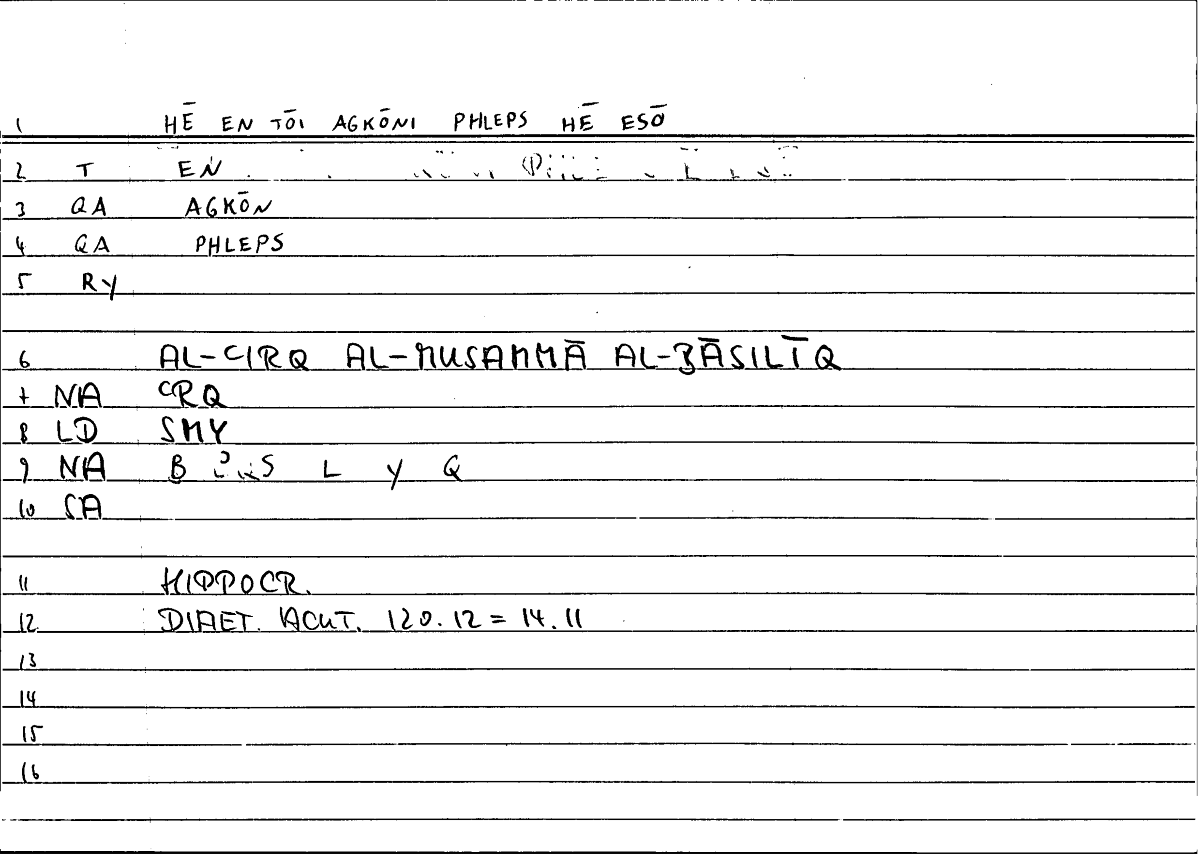 1 HĒ EN TŌI AGKŌNI PHLEPS HĒ ESŌ
2 T EN
3 QA AGKŌN
4 QA PHLEPS
5 RY
6 AL-CIRQ AL-MUSAMMĀ AL-BĀSILĪQ
7 NA CRQ
8 LD SMY
9 NA B S L Y Q
10 SA
11 HIPPOCR.
12 DIAET. ACUT. 120.12 = 14.11
13
14
15
16